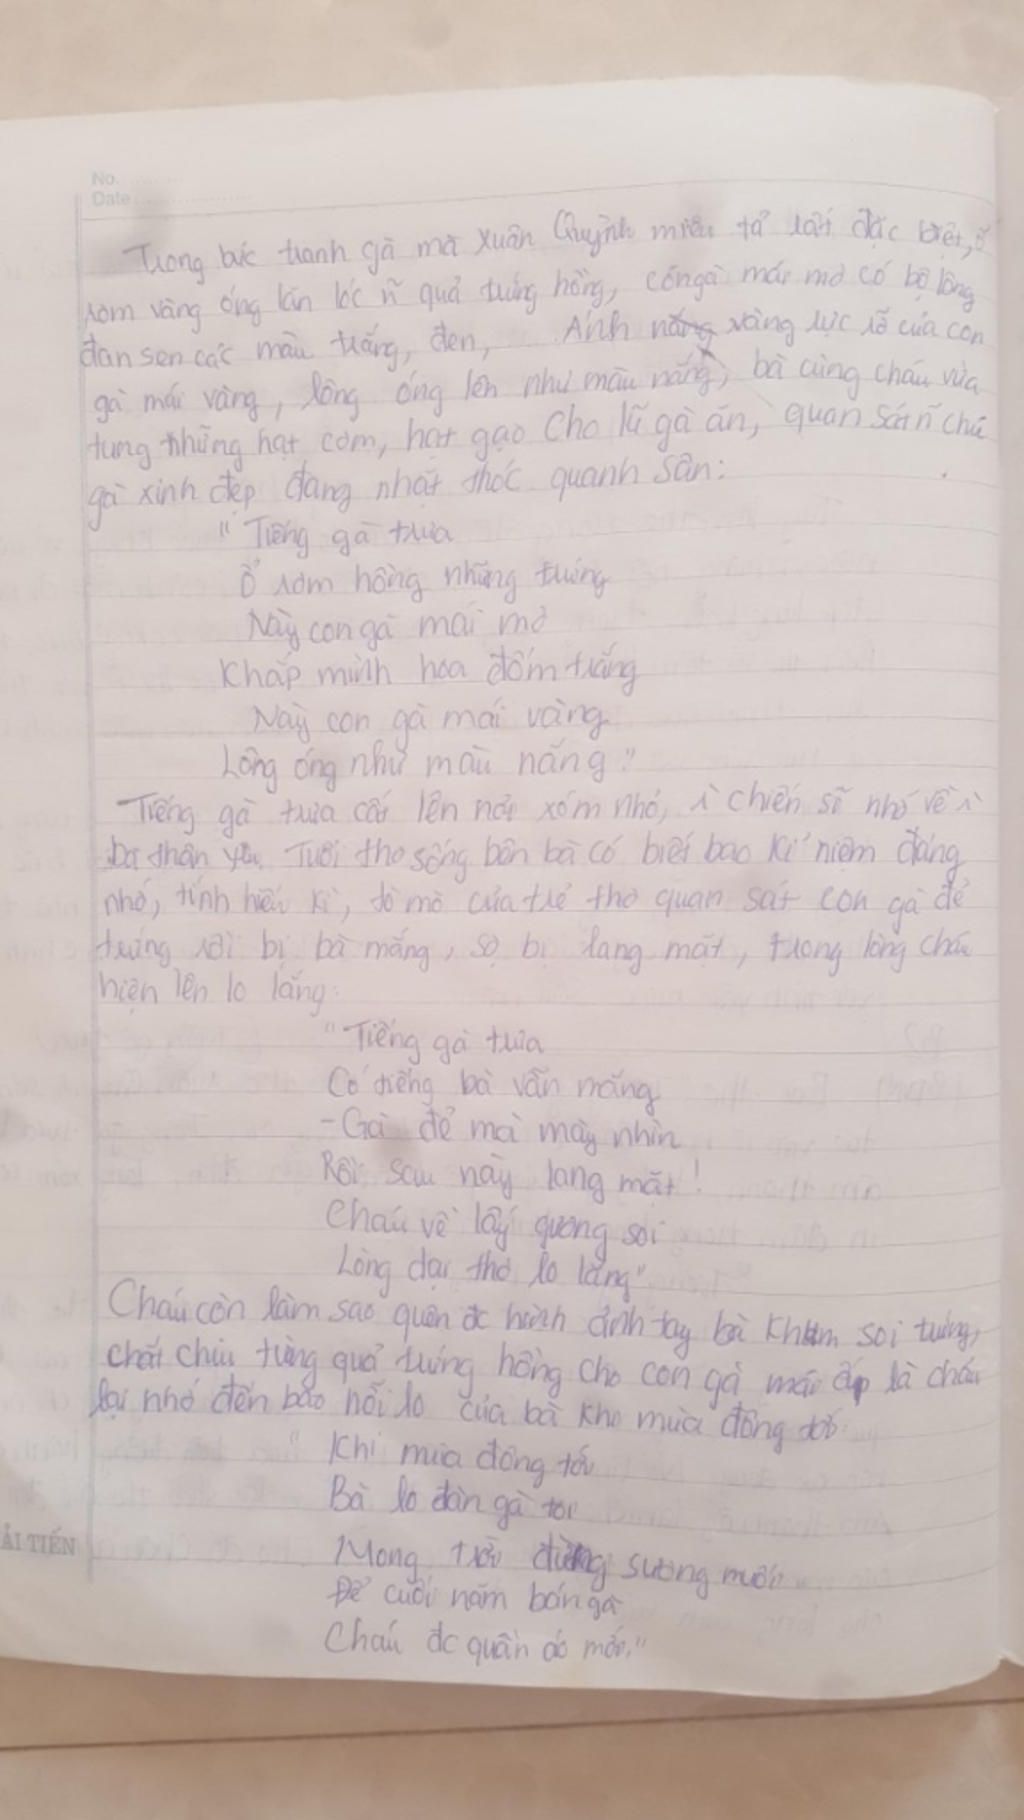 No. ..........
Date ..................
Trong bức tranh gà mà Xuân Quỳnh miêu tả rất đặc biệt, ổ
rơm vàng óng lăn lóc ~ñ quả trứng hồng, con gà mái mơ có bộ lông
đan sen các màu trắng, đen, ... Ánh vàng rực rỡ của con
gà mái vàng, lông óng lên như màu nắng, bà cùng cháu vừa
tung những hạt cơm, hạt gạo cho lũ gà ăn, quan sát ñ chú
gà xinh đẹp đang nhặt thóc quanh sân:
" Tiếng gà trưa
Ổ rơm hồng những trứng
Này con gà mái mơ
Khắp mình hoa đốm trắng
Này con gà mái vàng
Lông óng như màu nắng"
Tiếng gà trưa cất lên nơi xóm nhỏ, chiến sĩ nhớ về
bà thân yêu. Tuổi thơ sống bên bà có biết bao kỉ niệm đáng
nhớ, tính hiếu kì, tò mò của trẻ thơ quan sát con gà đẻ
trứng rồi bị bà mắng, sợ bị lang mặt, trong lòng cháu
hiện lên lo lắng:
"Tiếng gà trưa
Có tiếng bà vẫn mắng
- Gà đẻ mà mày nhìn
Rồi sau này lang mặt!
Cháu về lấy gương soi
Lòng dại thơ lo lắng"
Cháu còn làm sao quên đc hình ảnh tay bà khum soi trứng,
chắt chiu từng quả trứng hồng cho con gà mái ấp là cháu
lại nhớ đến bao nỗi lo của bà kho mùa đông tới:
" Khi mùa đông tới
Bà lo đàn gà toi
Mong trời đừng sương muối
Để cuối năm bán gà
Cháu đc quần áo mới."
ẢI TIẾN